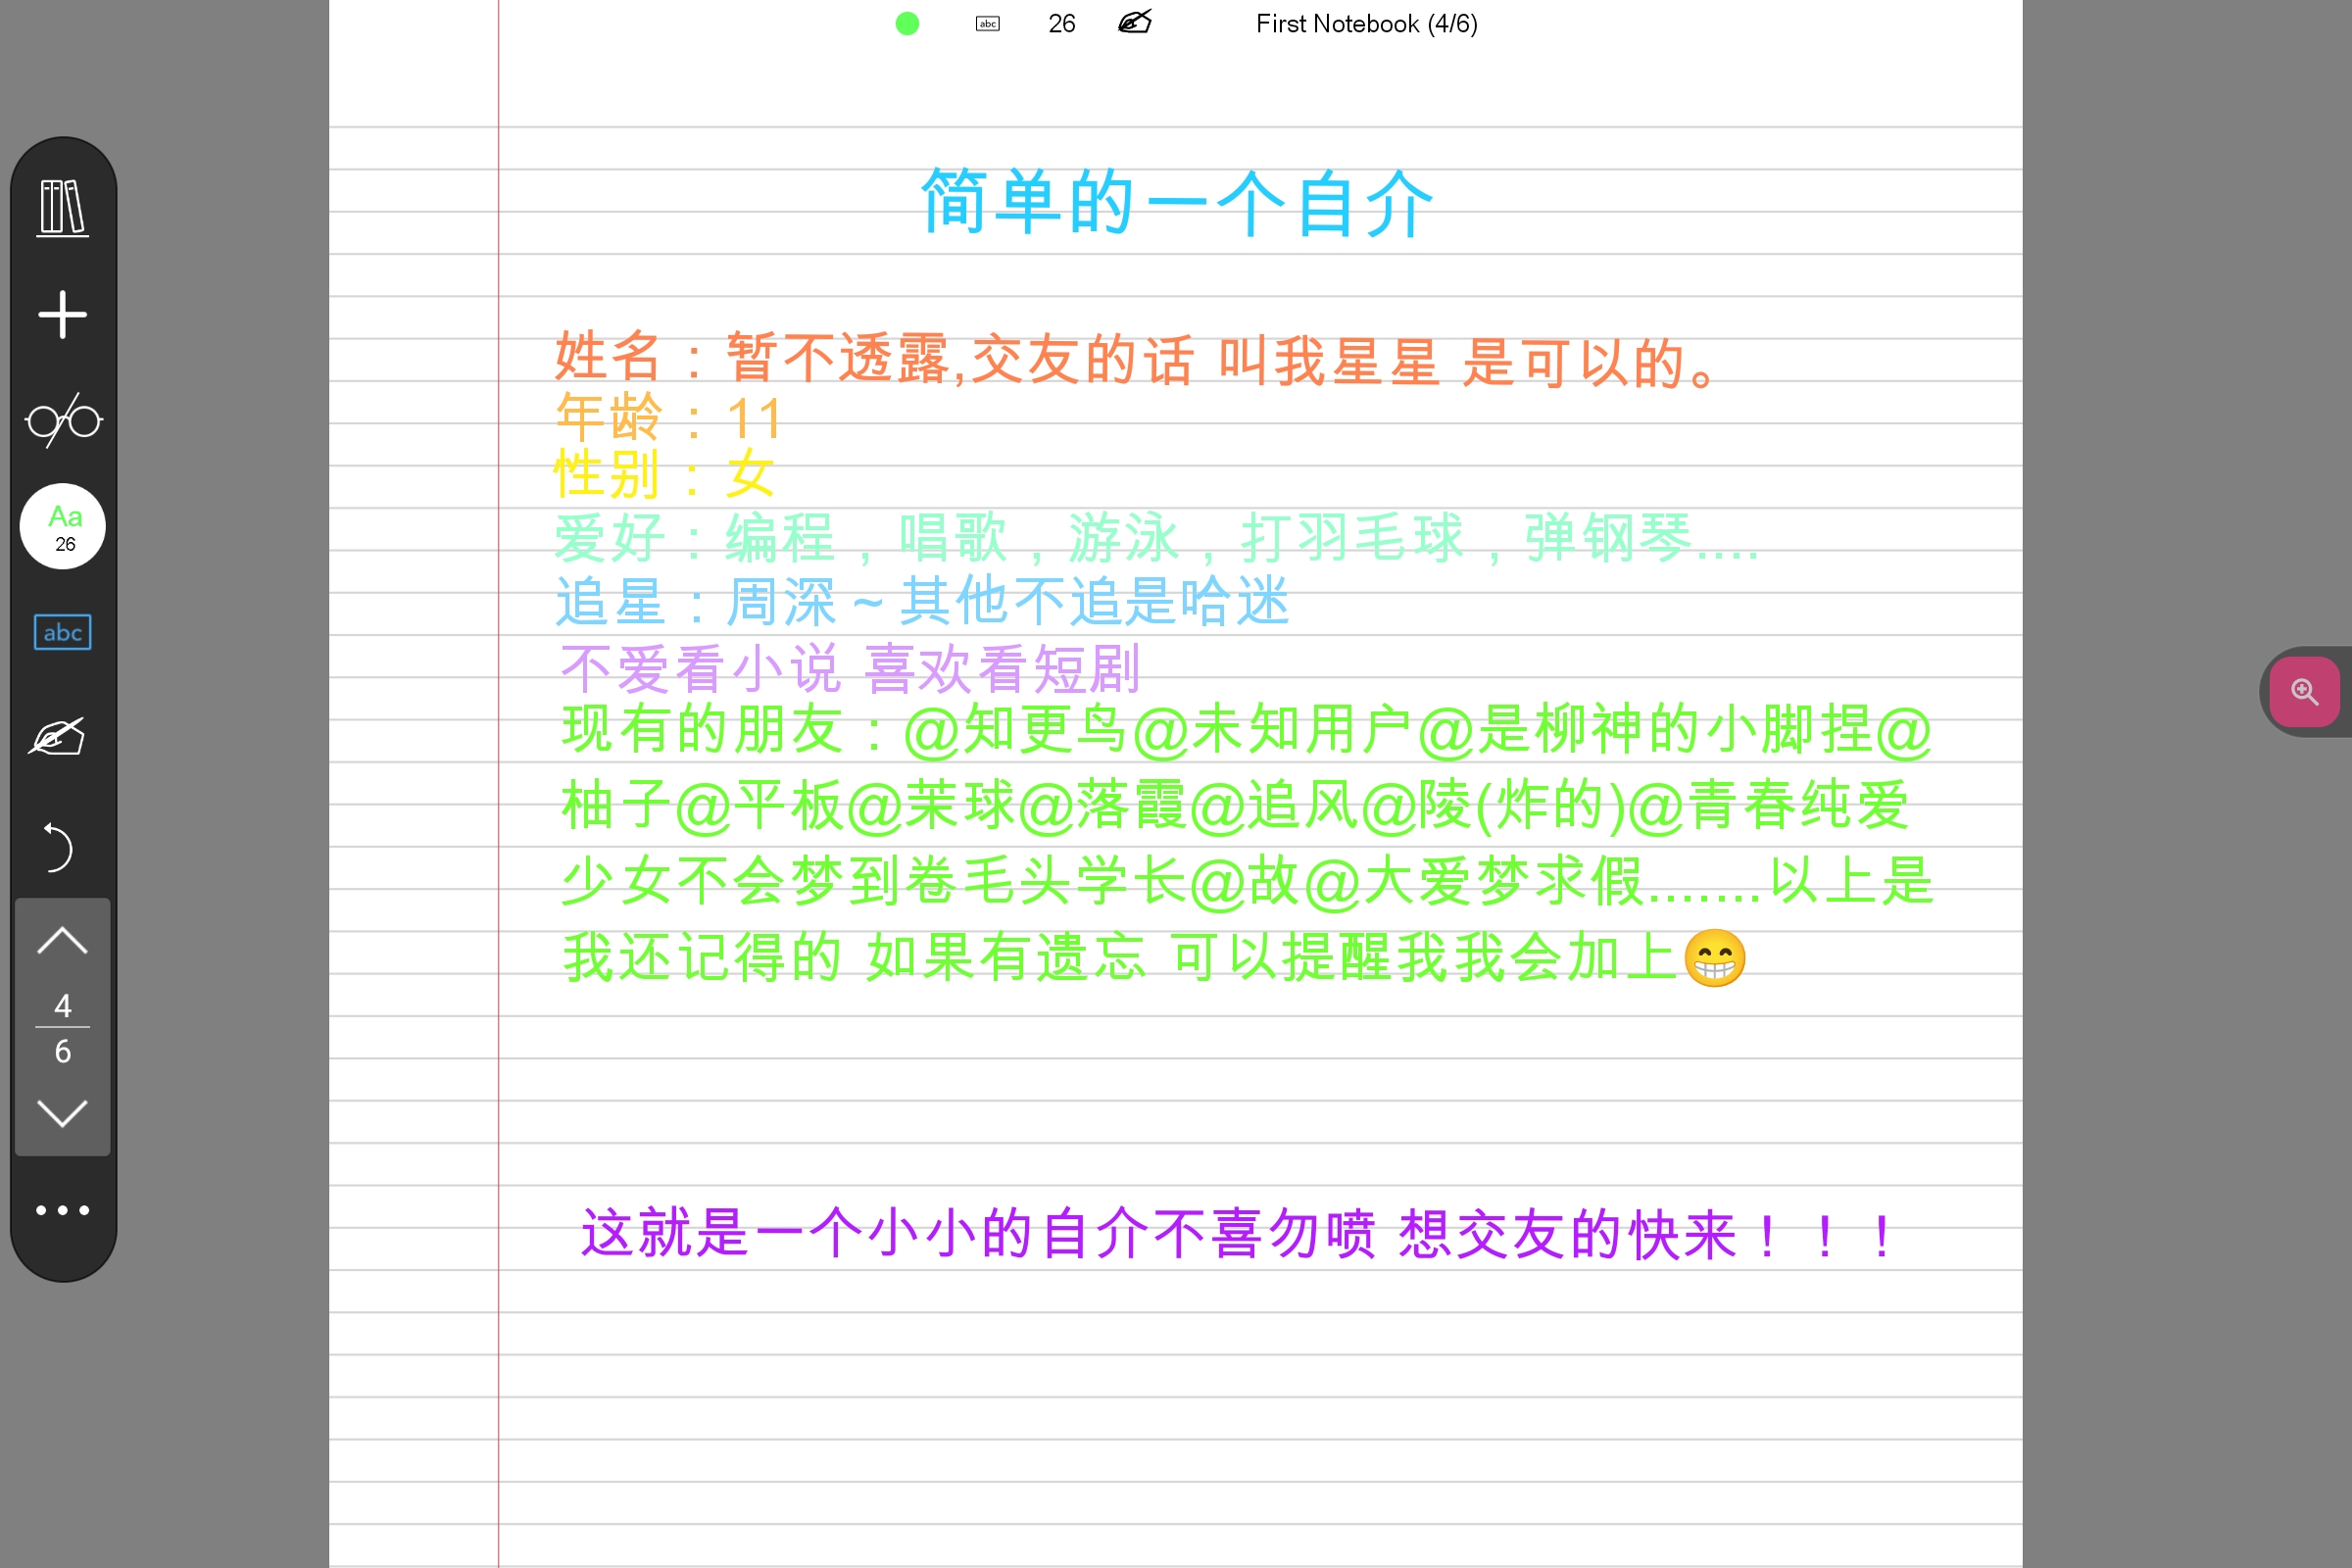 abc 26 First Notebook (4/6)
简单的一个自介
姓名：暂不透露,交友的话 叫我星星 是可以的。
年龄：11
性别：女
爱好：编程，唱歌，游泳，打羽毛球，弹钢琴....
追星：周深～其他不追是哈迷
不爱看小说 喜欢看短剧
现有的朋友：@知更鸟@未知用户@是柳神的小脚捏@
柚子@平板@茉球@落霞@追风@陵(炸的)@青春纯爱
少女不会梦到卷毛头学长@故@大爱梦求假.......以上是
我还记得的 如果有遗忘 可以提醒我我会加上😁
这就是一个小小的自介不喜勿喷 想交友的快来！！！
Aa
26
abc
4
6